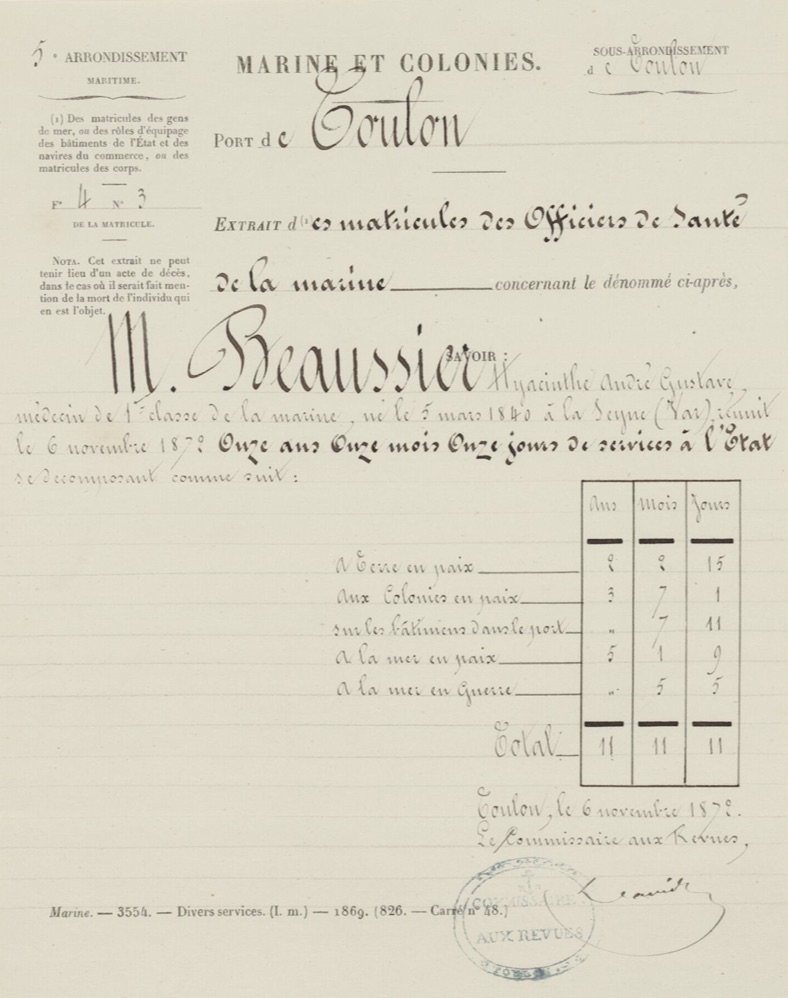 5e ARRONDISSEMENT
MARITIME.
MARINE ET COLONIES.
SOUS-ARRONDISSEMENT
de Toulon
(1) Des matricules des gens
de mer, ou des rôles d'équipage
des bâtiments de l'État et des
navires du commerce, ou des
matricules des corps.
PORT de Toulon
F° 4 N° 3
DE LA MATRICULE.
EXTRAIT d(1)es matricules des Officiers de Santé
NOTA. Cet extrait ne peut
tenir lieu d'un acte de décès,
dans le cas où il serait fait men-
tion de la mort de l'individu qui
en est l'objet.
de la marine concernant le dénommé ci-après,
SAVOIR :
M. Beaussier Hyacinthe André Gustave,
médecin de 1re classe de la marine, né le 5 mars 1840 à la Seyne (Var), réunit
le 6 novembre 1872 Onze ans Onze mois Onze jours de services à l'Etat
se decomposant comme suit :
Ans Mois Jours
A Terre en paix 2 2 15
Aux Colonies en paix 3 7 1
sur les bâtimens dans le port " 7 11
A la mer en paix 5 1 9
A la mer en Guerre " 5 5
Total 11 11 11
Toulon, le 6 novembre 1872.
Le Commissaire aux Revues,
COMMISSAIRE
AUX REVUES
TOULON
Marine. — 3554. — Divers services. (I. m.) — 1869. (826. — Carré n° 48.)